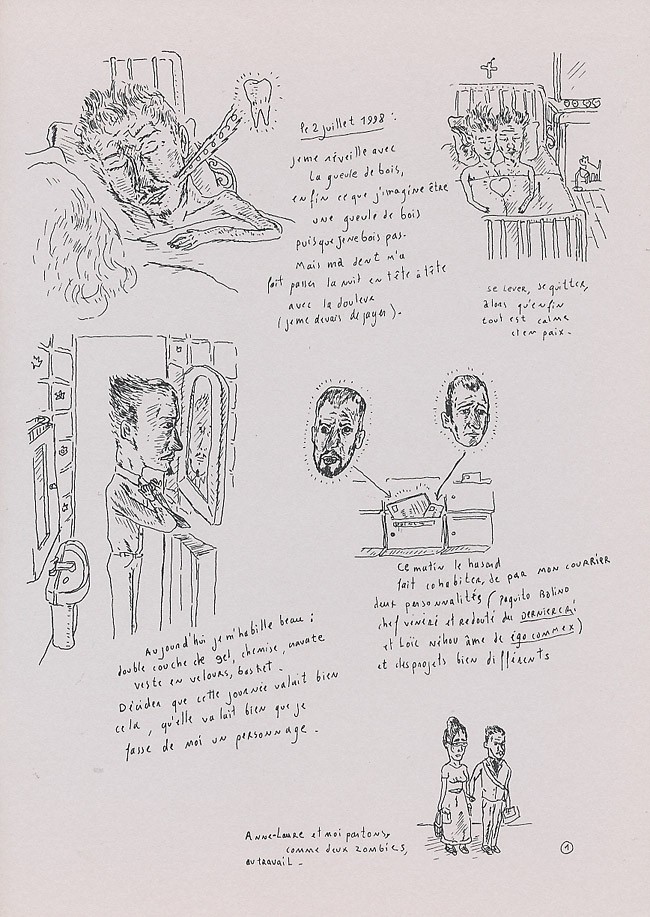 le 2 juillet 1998 :
je me réveille avec
la gueule de bois,
enfin ce que j'imagine être
une gueule de bois
puisque je ne bois pas.
Mais ma dent m'a
fait passer la nuit en tête à tête
avec la douleur
(je me devais de payer).
se lever, se quitter,
alors qu'enfin
tout est calme
et en paix.
Aujourd'hui je m'habille beau :
double couche de gel, chemise, cravate
veste en velours, basket.
Décider que cette journée valait bien
cela, qu'elle valait bien que je
fasse de moi un personnage.
Ce matin le hasard
fait cohabiter, de par mon courrier
deux personnalités (Paquito Bolino
chef vénéré et redouté du DERNIER CRI
et Loïc Néhou âme de égo comme x)
et des projets bien différents
Anne-Laure et moi partons,
comme deux zombies,
au travail.
1